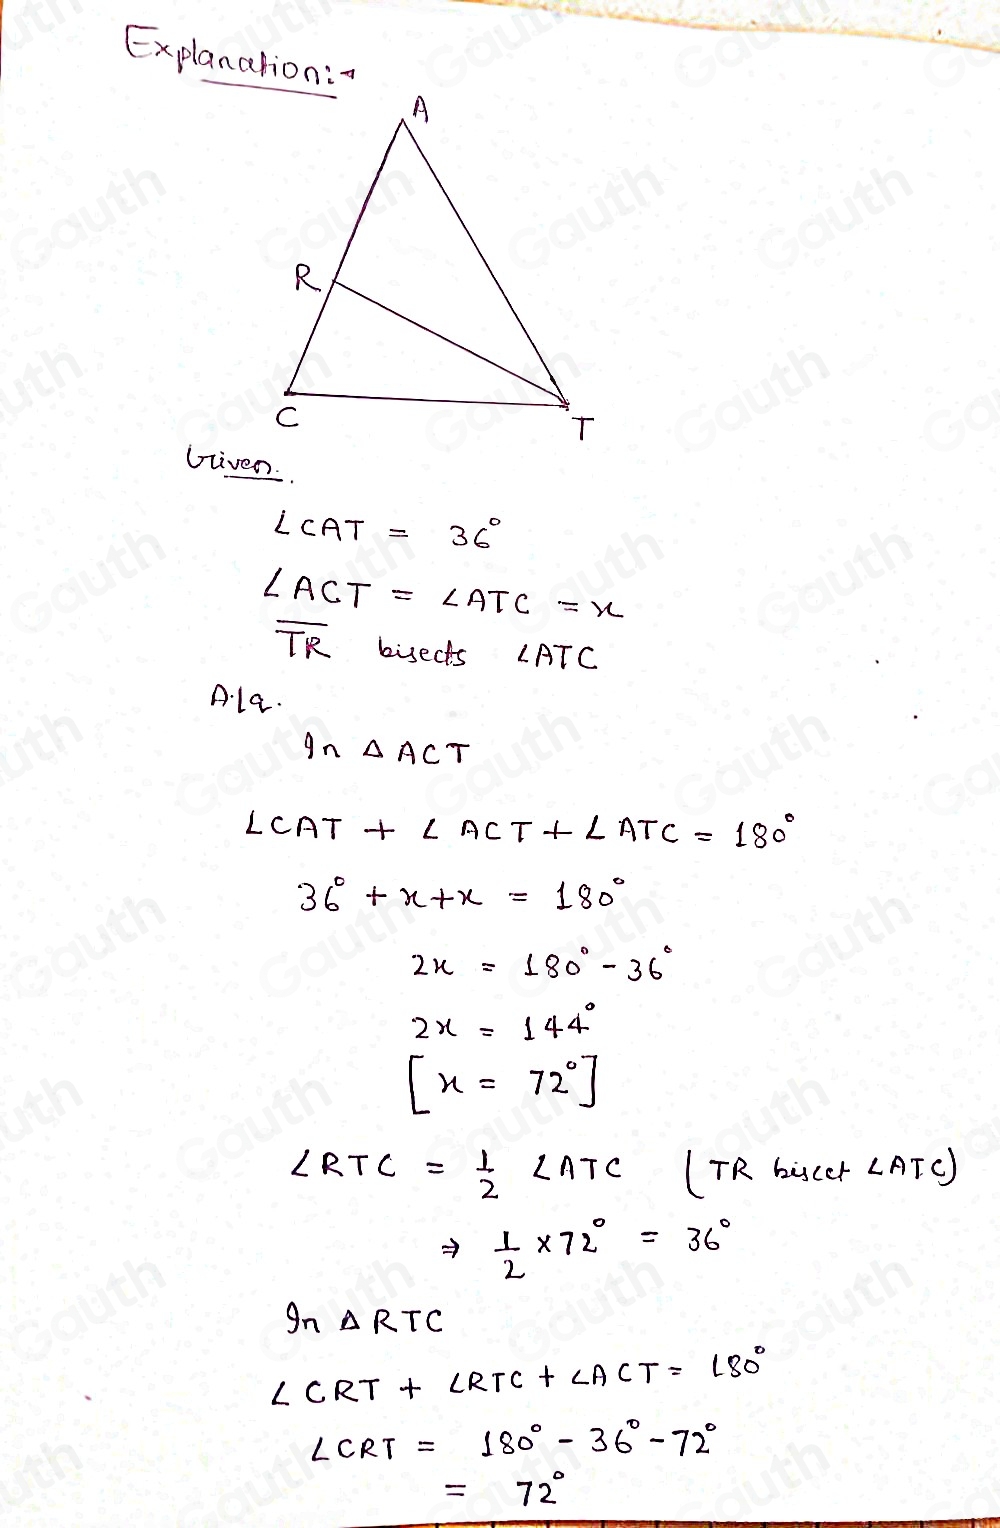 Explanation:-
A
R
C
T
Given.
∠CAT = 36°
∠ACT = ∠ATC = x
T̅R̅ bisects ∠ATC
A./q.
In △ ACT
∠CAT + ∠ACT + ∠ATC = 180°
36° + x + x = 180°
2x = 180° - 36°
2x = 144°
[x = 72°]
∠RTC = 1/2 ∠ATC (TR bisect ∠ATC)
⇒ 1/2 × 72° = 36°
In △ RTC
∠CRT + ∠RTC + ∠ACT = 180°
∠CRT = 180° - 36° - 72°
= 72°